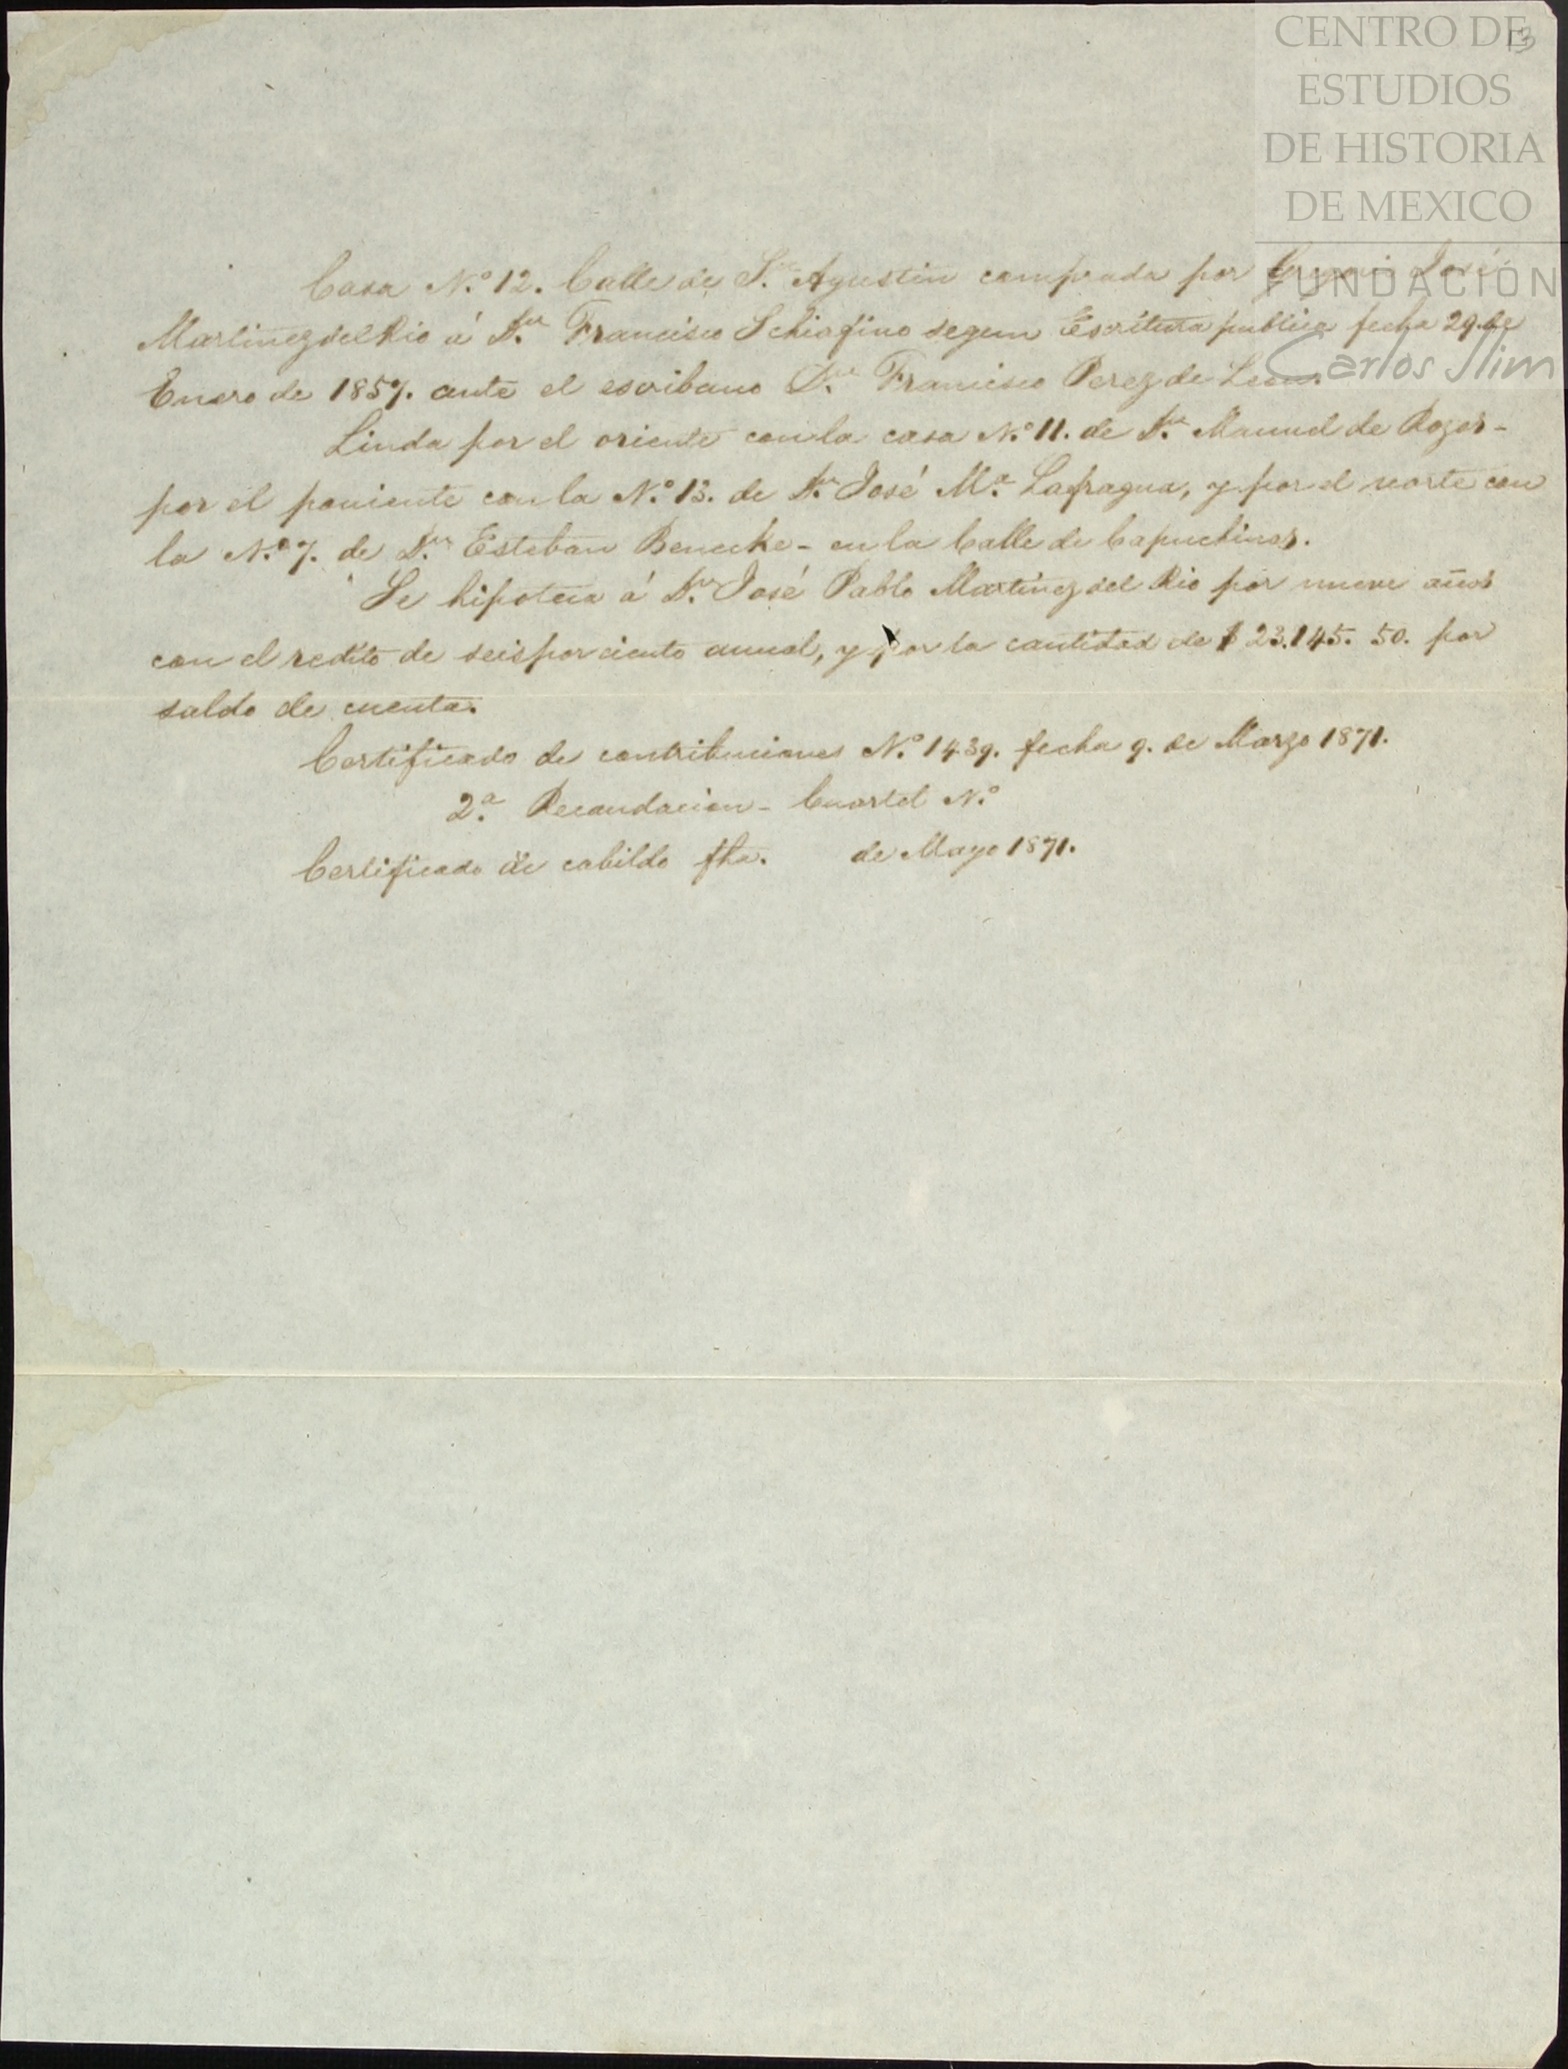 CENTRO DE
ESTUDIOS
DE HISTORIA
DE MEXICO
FUNDACIÓN
Carlos Slim
13
Casa N.º 12. Calle de S.n Agustin comprada por José
Martinez del Rio á D.n Francisco Schiafino segun Escritura publica fecha 29. de
Enero de 1857. ante el escribano D.n Francisco Perez de Leon.
Linda por el oriente con la casa N.º 11. de D.n Manuel de Rozas -
por el poniente con la N.º 13. de D.n José M.a Lafragua, y por el norte con
la N.º 7. de D.n Esteban Benecke - en la Calle de Capuchinas.
Se hipoteca á D.n José Pablo Martinez del Rio por nueve años
con el redito de seis por ciento anual, y por la cantidad de $ 23.145. 50. por
saldo de cuenta.
Certificado de contribuciones N.º 1439. fecha 9. de Marzo 1871.
2.a Recaudacion - Cuartel N.º
Certificado de cabildo fha. de Mayo 1871.